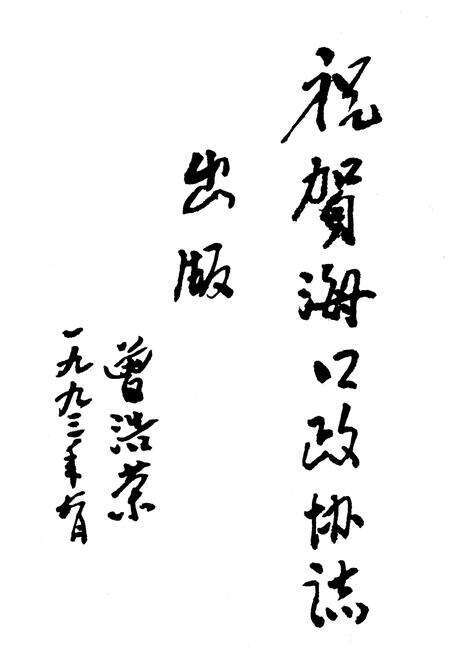 祝賀海口政协誌
出版
曾浩荣
一九九三年九月